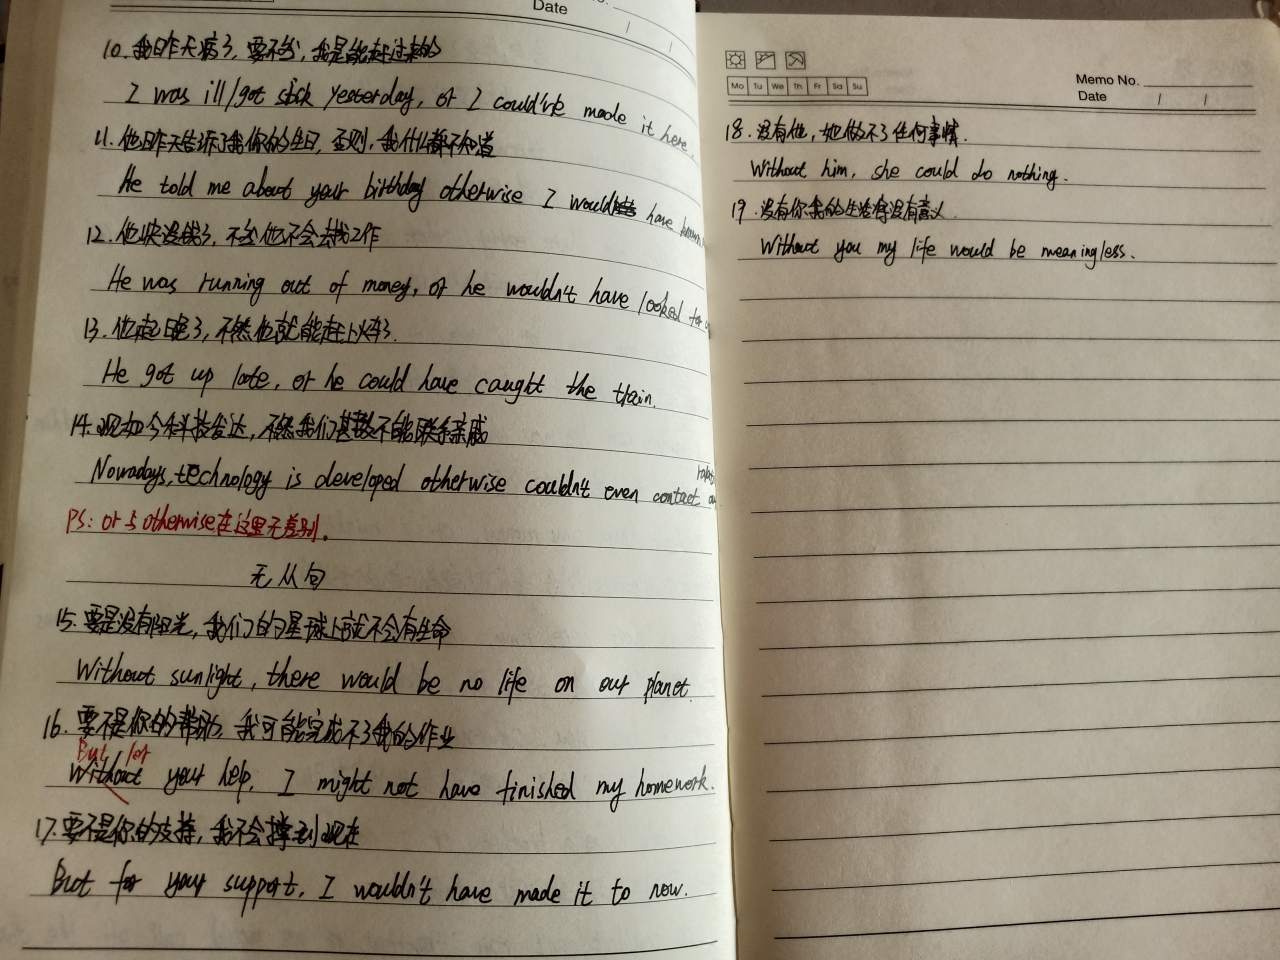 Date
10. 我昨天病了,要不然,我是能赶过来的
I was ill/got sick yesterday, or I could've made it here.
11. 他昨天告诉了我你的生日,否则,我什么都不知道
He told me about your birthday otherwise I would have known
12. 他快没钱了,不然他不会去找工作
He was running out of money, or he wouldn't have looked for
13. 他起晚了,不然他就能赶上火车了.
He got up late, or he could have caught the train.
14. 现如今科技发达,不然我们甚至不能联系亲戚
Nowadays, technology is developed otherwise couldn't even contact
PS: or与otherwise在这里无差别。
无从句
15. 要是没有阳光,我们的星球上就不会有生命
Without sunlight, there would be no life on our planet.
16. 要不是你的帮助,我可能完成不了我的作业
But for
Without your help, I might not have finished my homework.
17. 要不是你的支持,我不会撑到现在
But for your support, I wouldn't have made it to now.
Mo Tu We Th Fr Sa Su
Memo No.
Date / /
18. 没有他,她做不了任何事情.
Without him, she could do nothing.
19. 没有你我的生活将没有意义.
Without you my life would be meaningless.